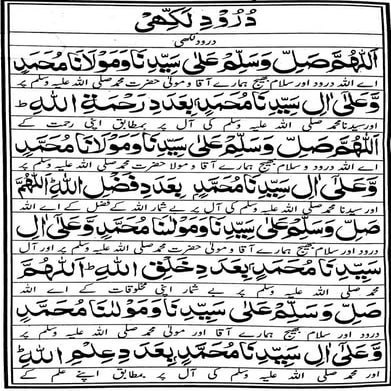 دُرُودِ لَکّھِیْ
درود لکھی
اَللّٰهُمَّ صَلِّ وَسَلِّمْ عَلٰی سَیِّدِنَا وَمَوْلَانَا مُحَمَّدٍ
اے اللہ درود اور سلام بھیج ہمارے آقا و مولیٰ حضرت محمد صلی اللہ علیہ وسلم پر
وَّعَلٰی اٰلِ سَیِّدِنَا مُحَمَّدٍ بِعَدَدِ رَحْمَةِ اللّٰهِ ط
اور سیدنا محمد صلی اللہ علیہ وسلم کی آل پر بمطابق اپنی رحمت کے
اَللّٰهُمَّ صَلِّ وَسَلِّمْ عَلٰی سَیِّدِنَا وَمَوْلَانَا مُحَمَّدٍ
اے اللہ درود اور سلام بھیج ہمارے آقا و مولا حضرت محمد صلی اللہ علیہ وسلم پر
وَّعَلٰی اٰلِ سَیِّدِنَا مُحَمَّدٍ بِعَدَدِ فَضْلِ اللّٰهِ ط اَللّٰهُمَّ
اور سیدنا محمد صلی اللہ علیہ وسلم کی آل پر بے شمار اللہ کے فضل کے اے اللہ
صَلِّ وَسَلِّمْ عَلٰی سَیِّدِنَا وَمَوْلٰنَا مُحَمَّدٍ وَّعَلٰی اٰلِ
درود اور سلام بھیج ہمارے آقا و مولیٰ حضرت محمد صلی اللہ علیہ وسلم پر اور آل
سَیِّدِنَا مُحَمَّدٍ بِعَدَدِ خَلْقِ اللّٰهِ ط اَللّٰهُمَّ
محمد صلی اللہ علیہ وسلم پر بے شمار اپنی مخلوقات کے اے اللہ
صَلِّ وَسَلِّمْ عَلٰی سَیِّدِنَا وَمَوْلٰنَا مُحَمَّدٍ
درود اور سلام بھیج ہمارے آقا اور مولیٰ محمد صلی اللہ علیہ وسلم پر
وَّعَلٰی اٰلِ سَیِّدِنَا مُحَمَّدٍ بِعَدَدِ عِلْمِ اللّٰهِ ط
اور آل محمد صلی اللہ علیہ وسلم پر بمطابق اپنے علم کے